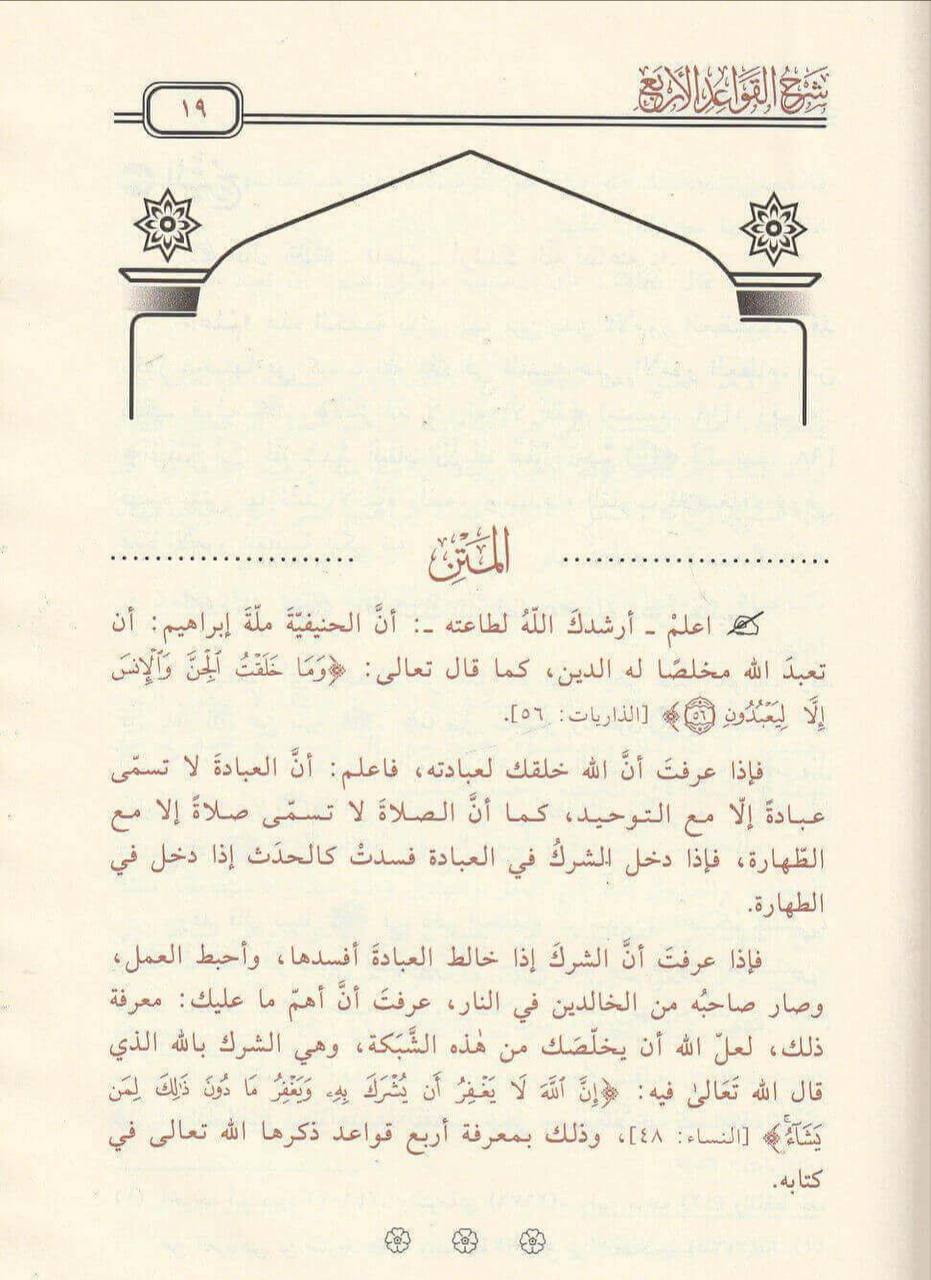 شَرْحُ القَوَاعِدِ الأَرْبَعِ
١٩
المَتْنِ
اعلمْ ـ أرشدكَ اللّهُ لطاعته ـ: أنَّ الحنيفيّةَ ملّةَ إبراهيم: أن
تعبدَ الله مخلصًا له الدين، كما قال تعالى: ﴿وَمَا خَلَقْتُ ٱلْجِنَّ وَٱلْإِنسَ
إِلَّا لِيَعْبُدُونِ ٥٦﴾ [الذاريات: ٥٦].
فإذا عرفتَ أنَّ الله خلقك لعبادته، فاعلم: أنَّ العبادةَ لا تسمّى
عبادةً إلّا مع التوحيد، كما أنَّ الصلاةَ لا تسمّى صلاةً إلا مع
الطّهارة، فإذا دخل الشركُ في العبادة فسدتْ كالحدَث إذا دخل في
الطهارة.
فإذا عرفتَ أنَّ الشركَ إذا خالط العبادةَ أفسدها، وأحبط العمل،
وصار صاحبُه من الخالدين في النار، عرفتَ أنَّ أهمّ ما عليك: معرفة
ذلك، لعلّ الله أن يخلّصَك من هٰذه الشَّبَكة، وهي الشرك بالله الذي
قال الله تَعَالىٰ فيه: ﴿إِنَّ ٱللَّهَ لَا يَغْفِرُ أَن يُشْرَكَ بِهِۦ وَيَغْفِرُ مَا دُونَ ذَٰلِكَ لِمَن
يَشَآءُ﴾ [النساء: ٤٨]، وذلك بمعرفة أربع قواعد ذكرها الله تعالى في
كتابه.